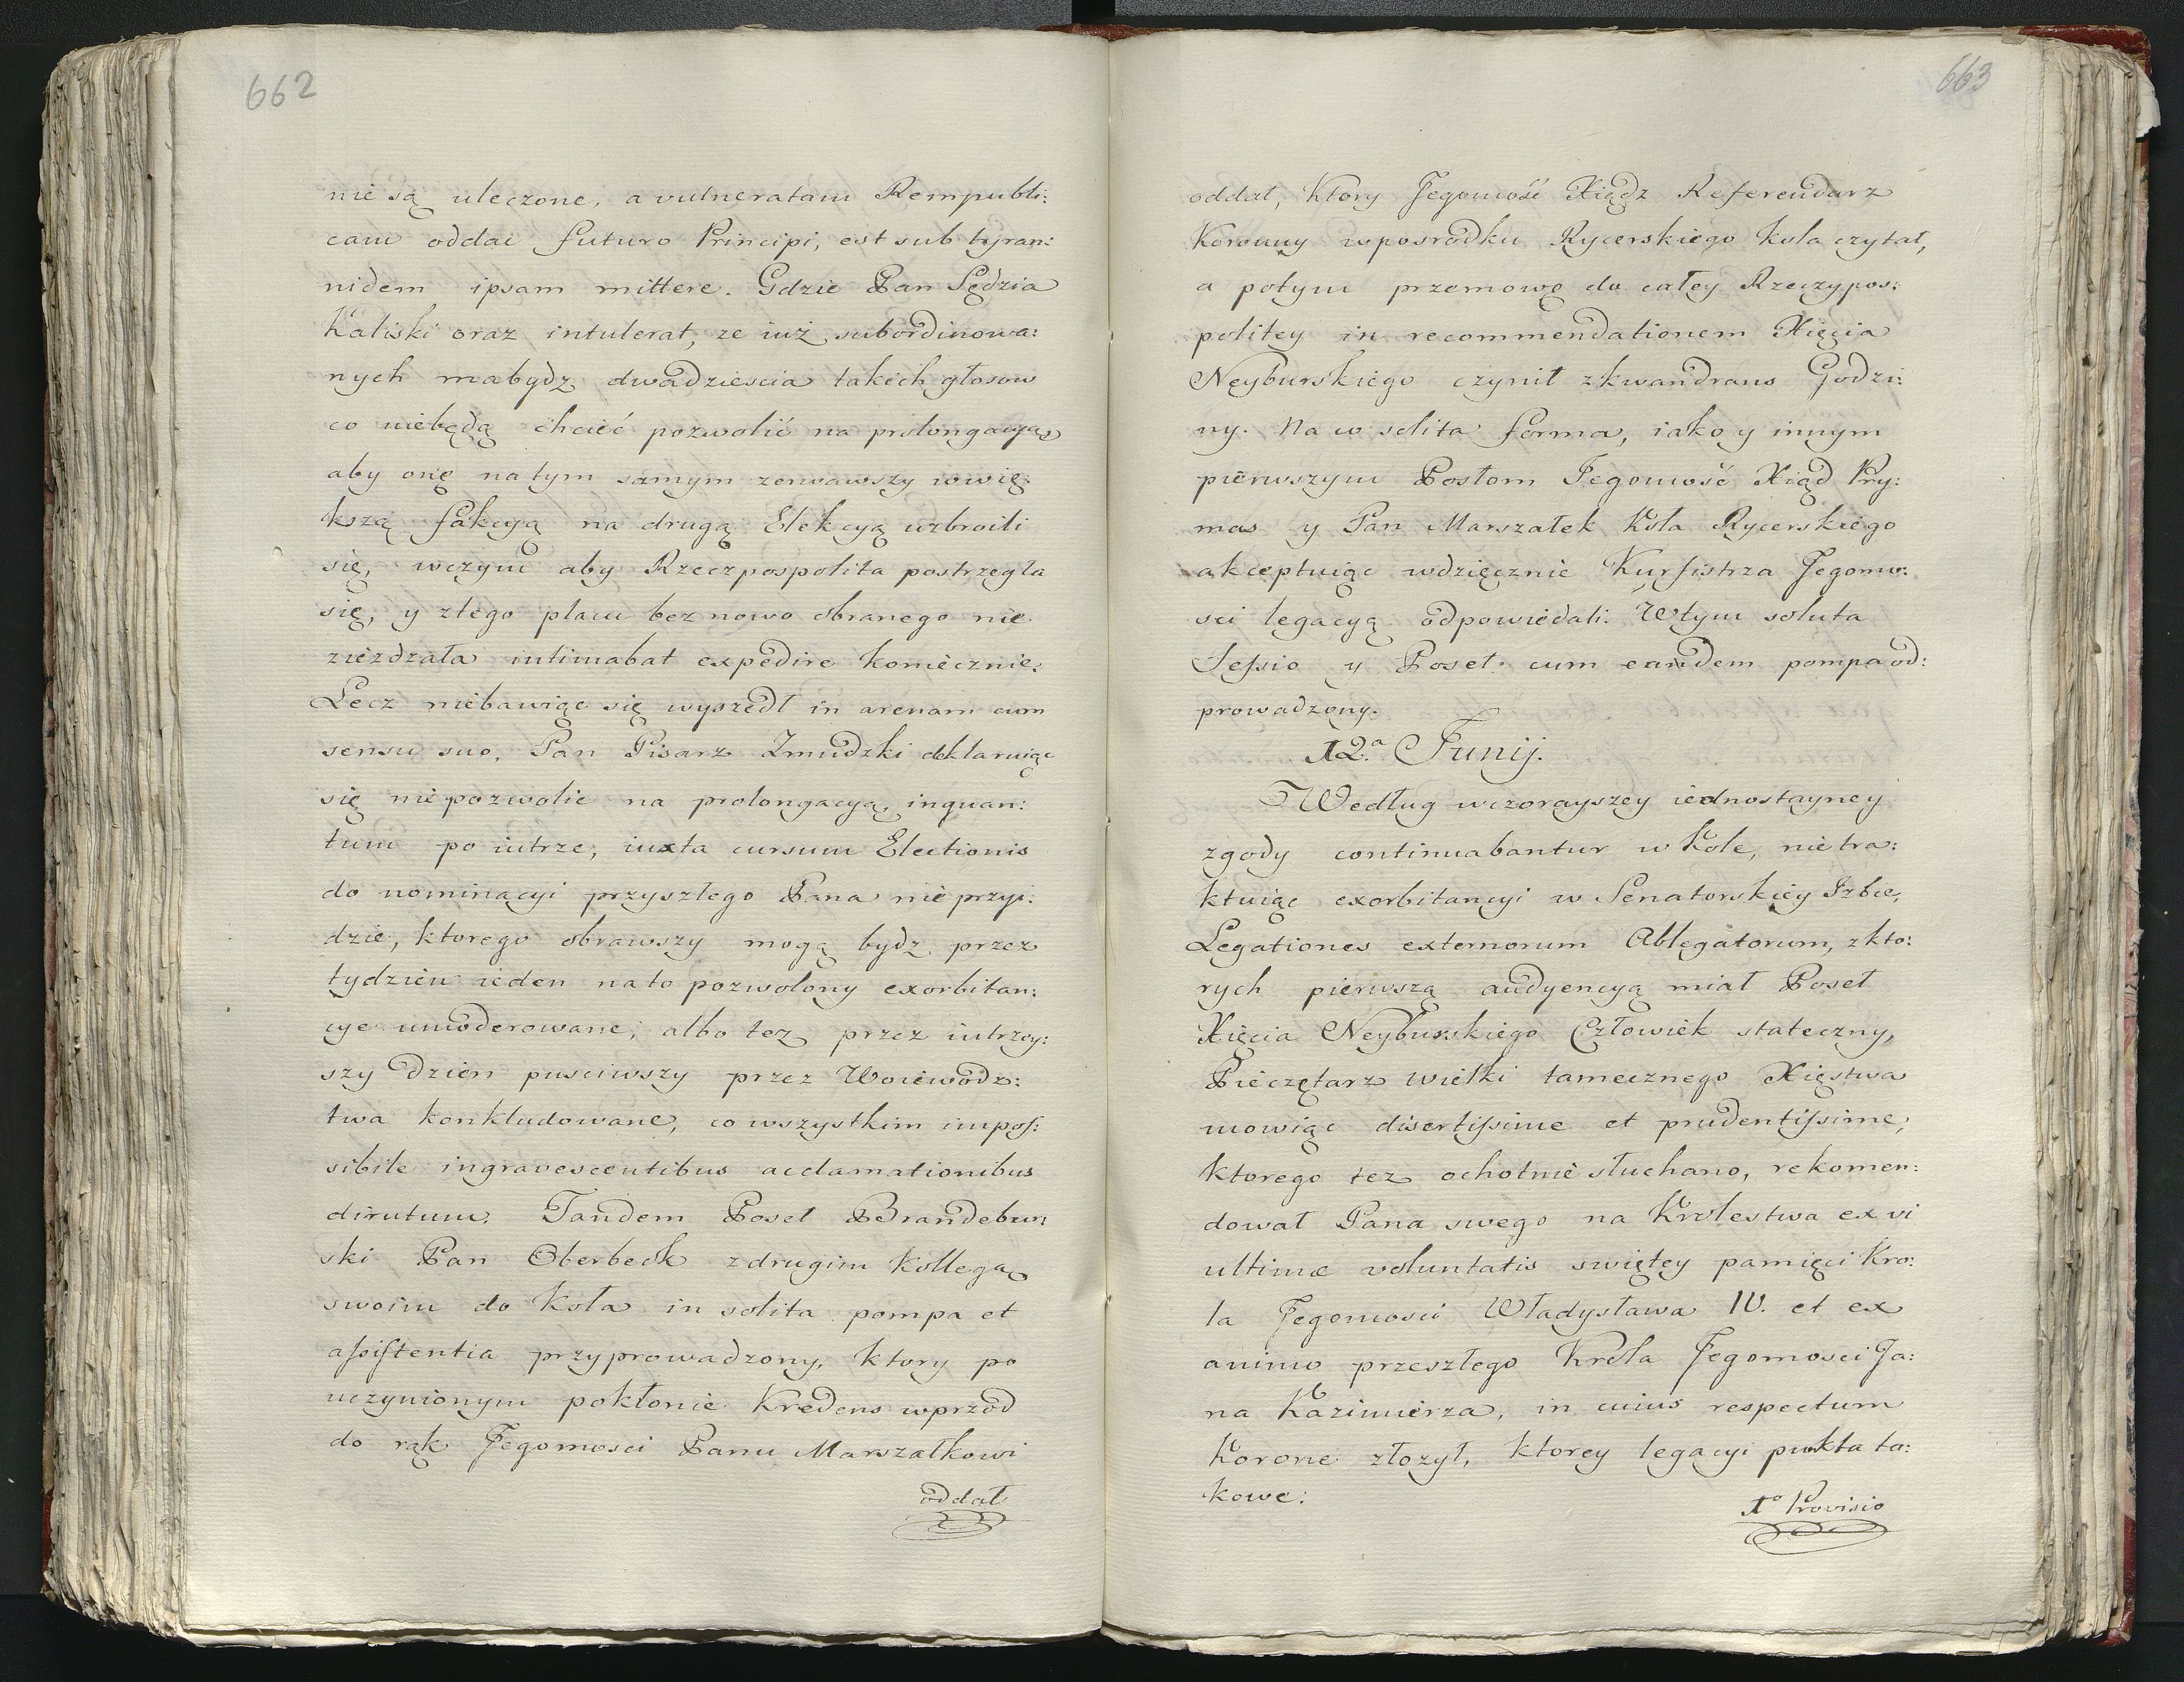 662
nie są uleczone, a vulneratam Rempubli:
cam oddać futuro Principi, est sub tyran:
nidem ipsam mittere. Gdzie Pan Sędzia
Kaliski oraz intulerat, ze iuż subordinowa:
nych mabydz dwadziescia takich głosow
co niebędą chcieć pozwolić na prolongacyą,
aby onę na tym samym zerwawszy wwię:
kszą fakcyą na drugą Elekcyą uzbroili
się, wczym aby Rzeczpospolita postrzegła
się, y ztego placu bez nowo obranego nie
zieżdzała intimabat expedire koniecznie.
Lecz niebawiąc się wyszedł in arenam cum
sensu suo, Pan Pisarz Zmudzki deklaruiąc
się nie pozwolic na prolongacyą, inquan:
tum po iutrze, iuxta cursum Electionis
do nominacyi przyszłego Pana nie przyi:
dzie, ktorego obrawszy mogą bydz przez
tydzien ieden na to pozwolony exorbitan:
cye umoderowane, albo tez przez iutrzey:
szy dzien pusciwszy przez Woiewodz:
twa konkludowane, co wszystkim impos:
sibile ingravescentibus acclamationibus
dirutum. Tandem Poseł Brandebur:
ski Pan Oberbeck z drugim Kollegą
swoim do Koła in solita pompa et
assistentia przyprowadzony, ktory po
uczynionym pokłonie Kredens wprzod
do rąk Jegomosci Panu Marszałkowi
oddał
663
oddał, Ktory Jegomość Xiądz Referendarz
Koronny wposrodku Rycerskiego koła czytał,
a potym przemowę do całey Rzeczypos:
politey in recommendationem Xięcia
Neyburskiego czynił z kwandrans Godzi:
ny. Na co solita forma, iako y innym
pierwszym Posłom Jegomość Xiąd Pry:
mas y Pan Marszałek Koła Rycerskiego
akceptuiąc wdzięcznie Kurfistrza Jegomo:
sci legacyą odpowiedali. Wtym soluta
Sessio y Poseł cum eandem pompa od:
prowadzony.
12.a Junij.
Według wczorayszey iednostayney
zgody continuabantur w Kole, nie tra:
ktuiąc exorbitancyi w Senatorskiey Izbie,
Legationes externorum Ablegatorum, z kto:
rych pierwszą audyencyą miał Poseł
Xięcia Neyburskiego Człowiek stateczny,
Pieczętarz wielki tamecznego Xięstwa
mowiąc disertissime et prudentissime,
ktorego tez ochotnie słuchano, rekomen:
dował Pana swego na Krolestwa ex vi
ultimæ voluntatis swiętey pamięci Kro:
la Jegomosci Władysława IV. et ex
animo przeszłego Krola Jegomosci Ja:
na Kazimierza, in cuius respectum
Korone złozył, ktorey legacyi pukta ta:
kowe:
1o Provisio